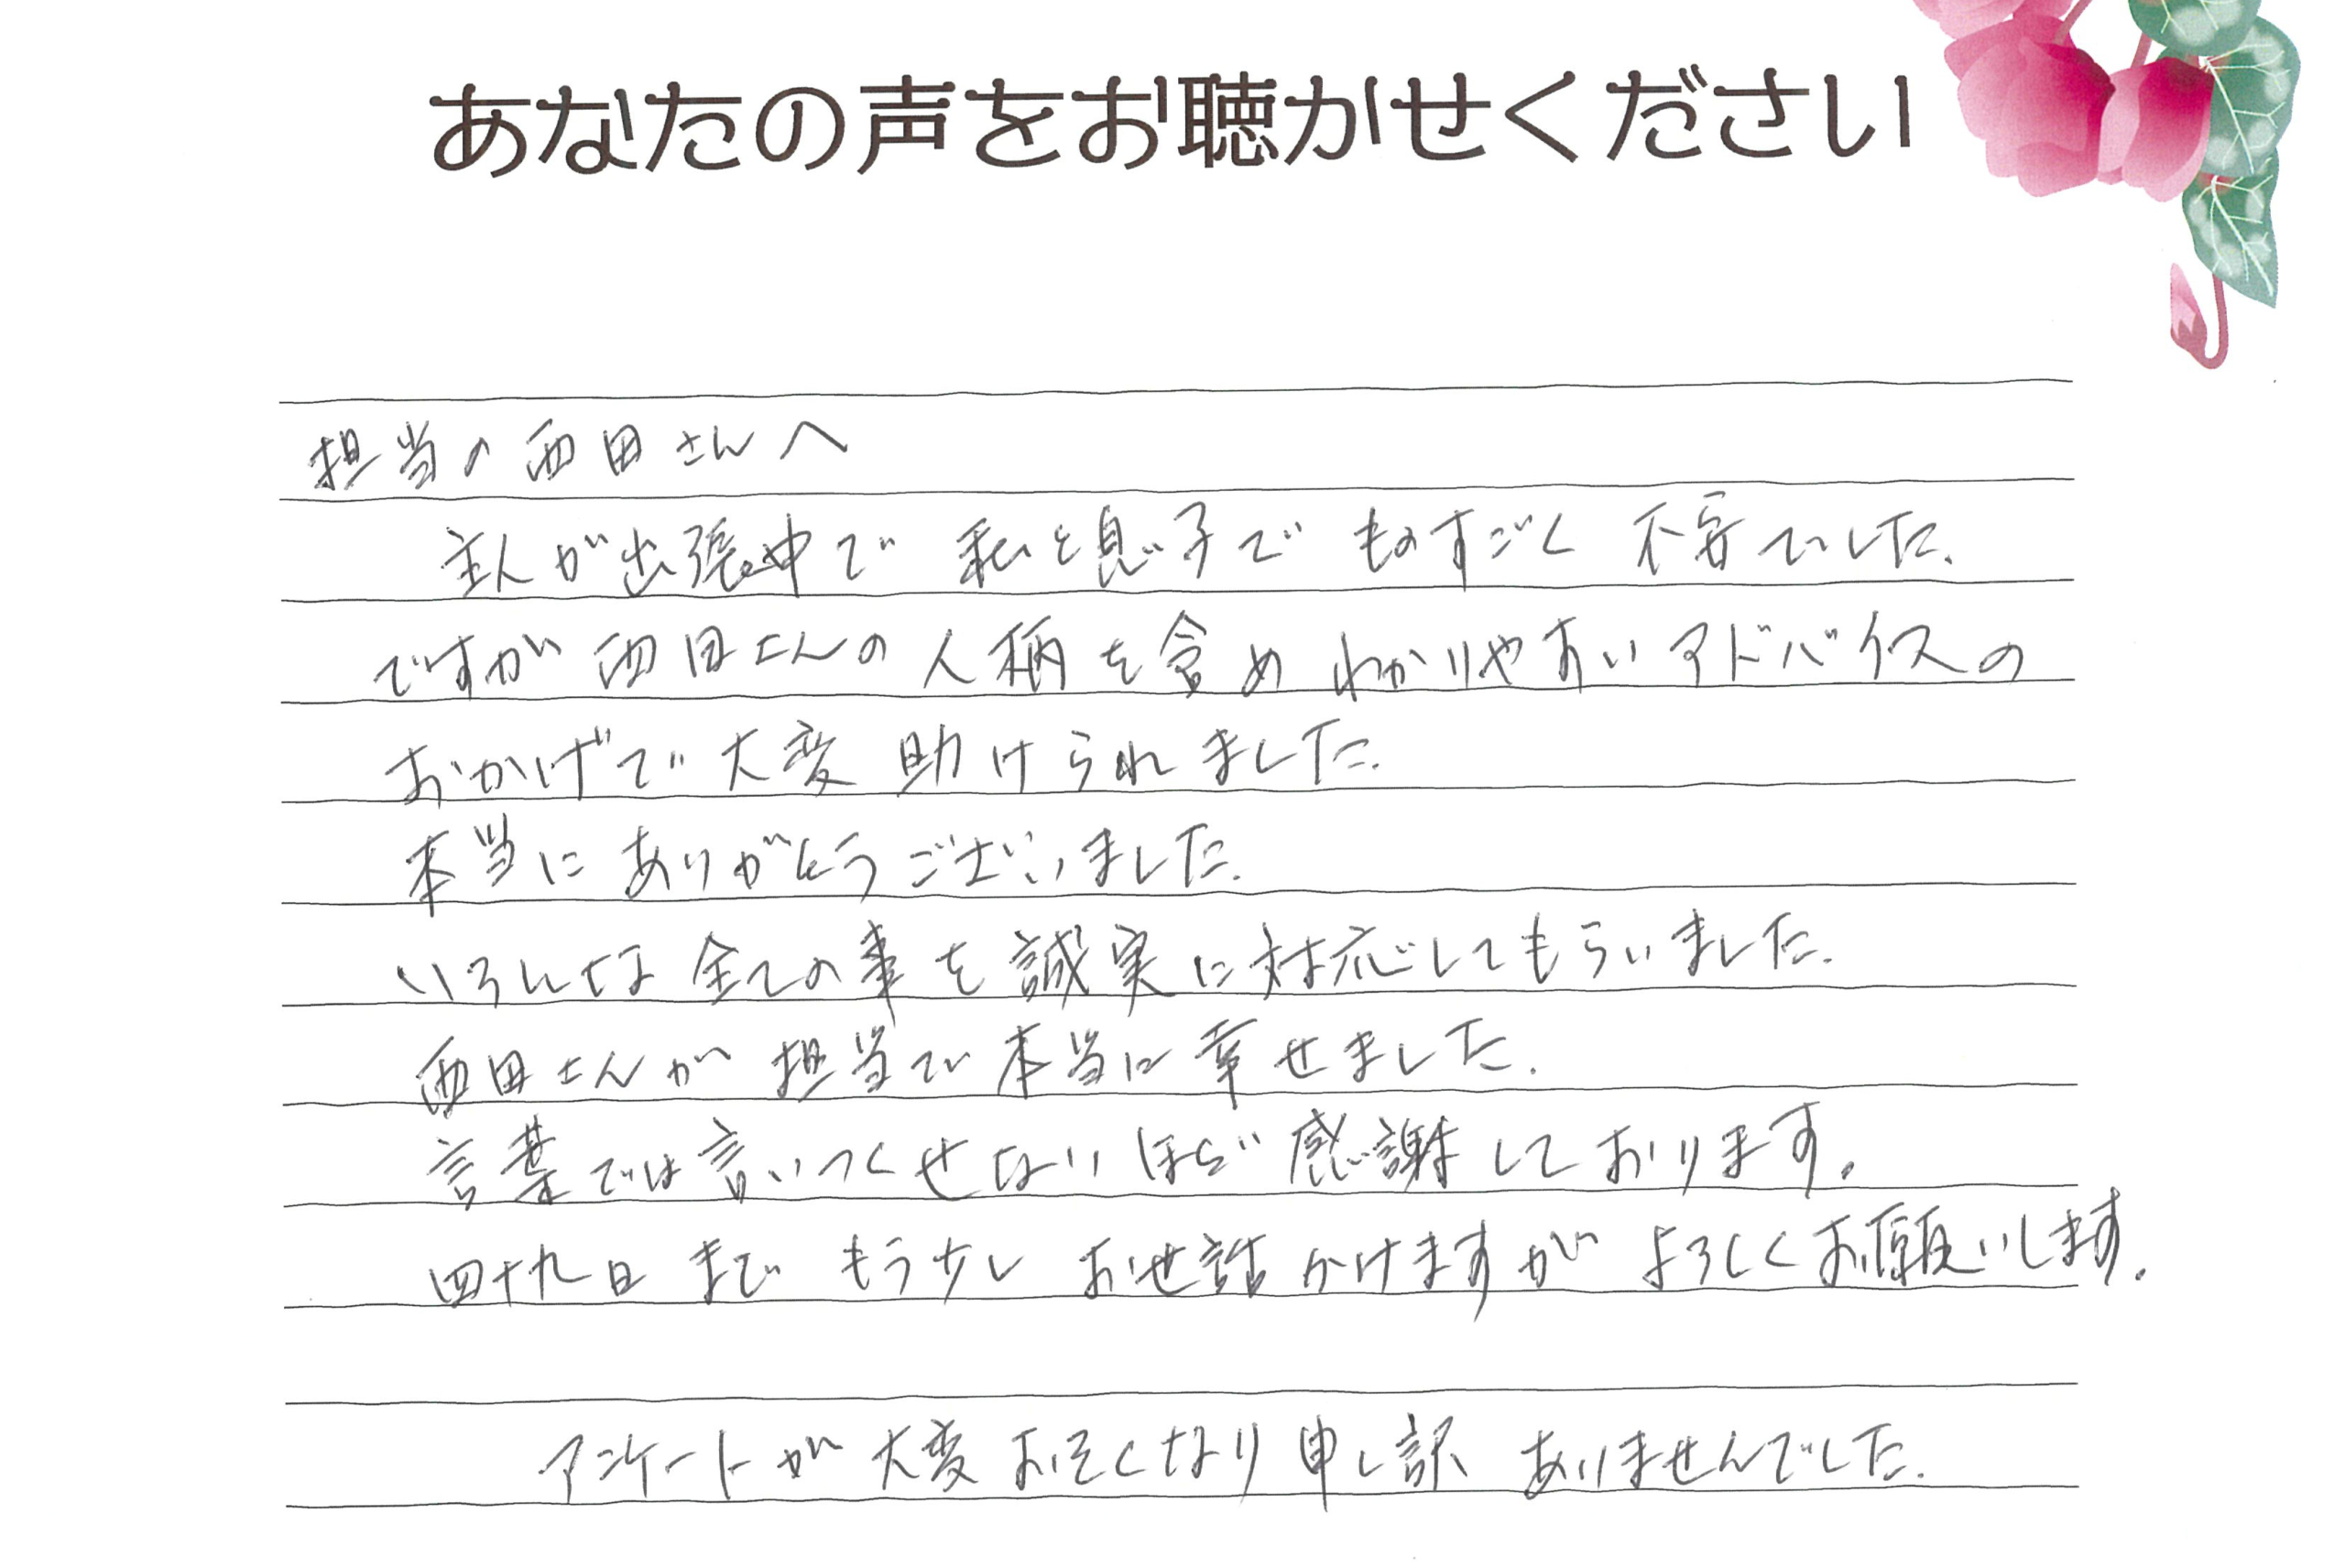 あなたの声をお聴かせください
担当の西田さんへ
主人が出張中で 私と息子で ものすごく 不安でした.
ですが 西田さんの 人柄を含め わかりやすいアドバイスの
おかげで 大変 助けられました.
本当に ありがとうございました.
いろんな 全ての事を 誠実に対応してもらいました.
西田さんが 担当で 本当に 幸せました.
言葉では言いつくせないほど 感謝しております。
四十九日 まで もう少し お世話かけますが よろしくお願いします.
アンケートが 大変 おそくなり 申し訳 ありませんでした.